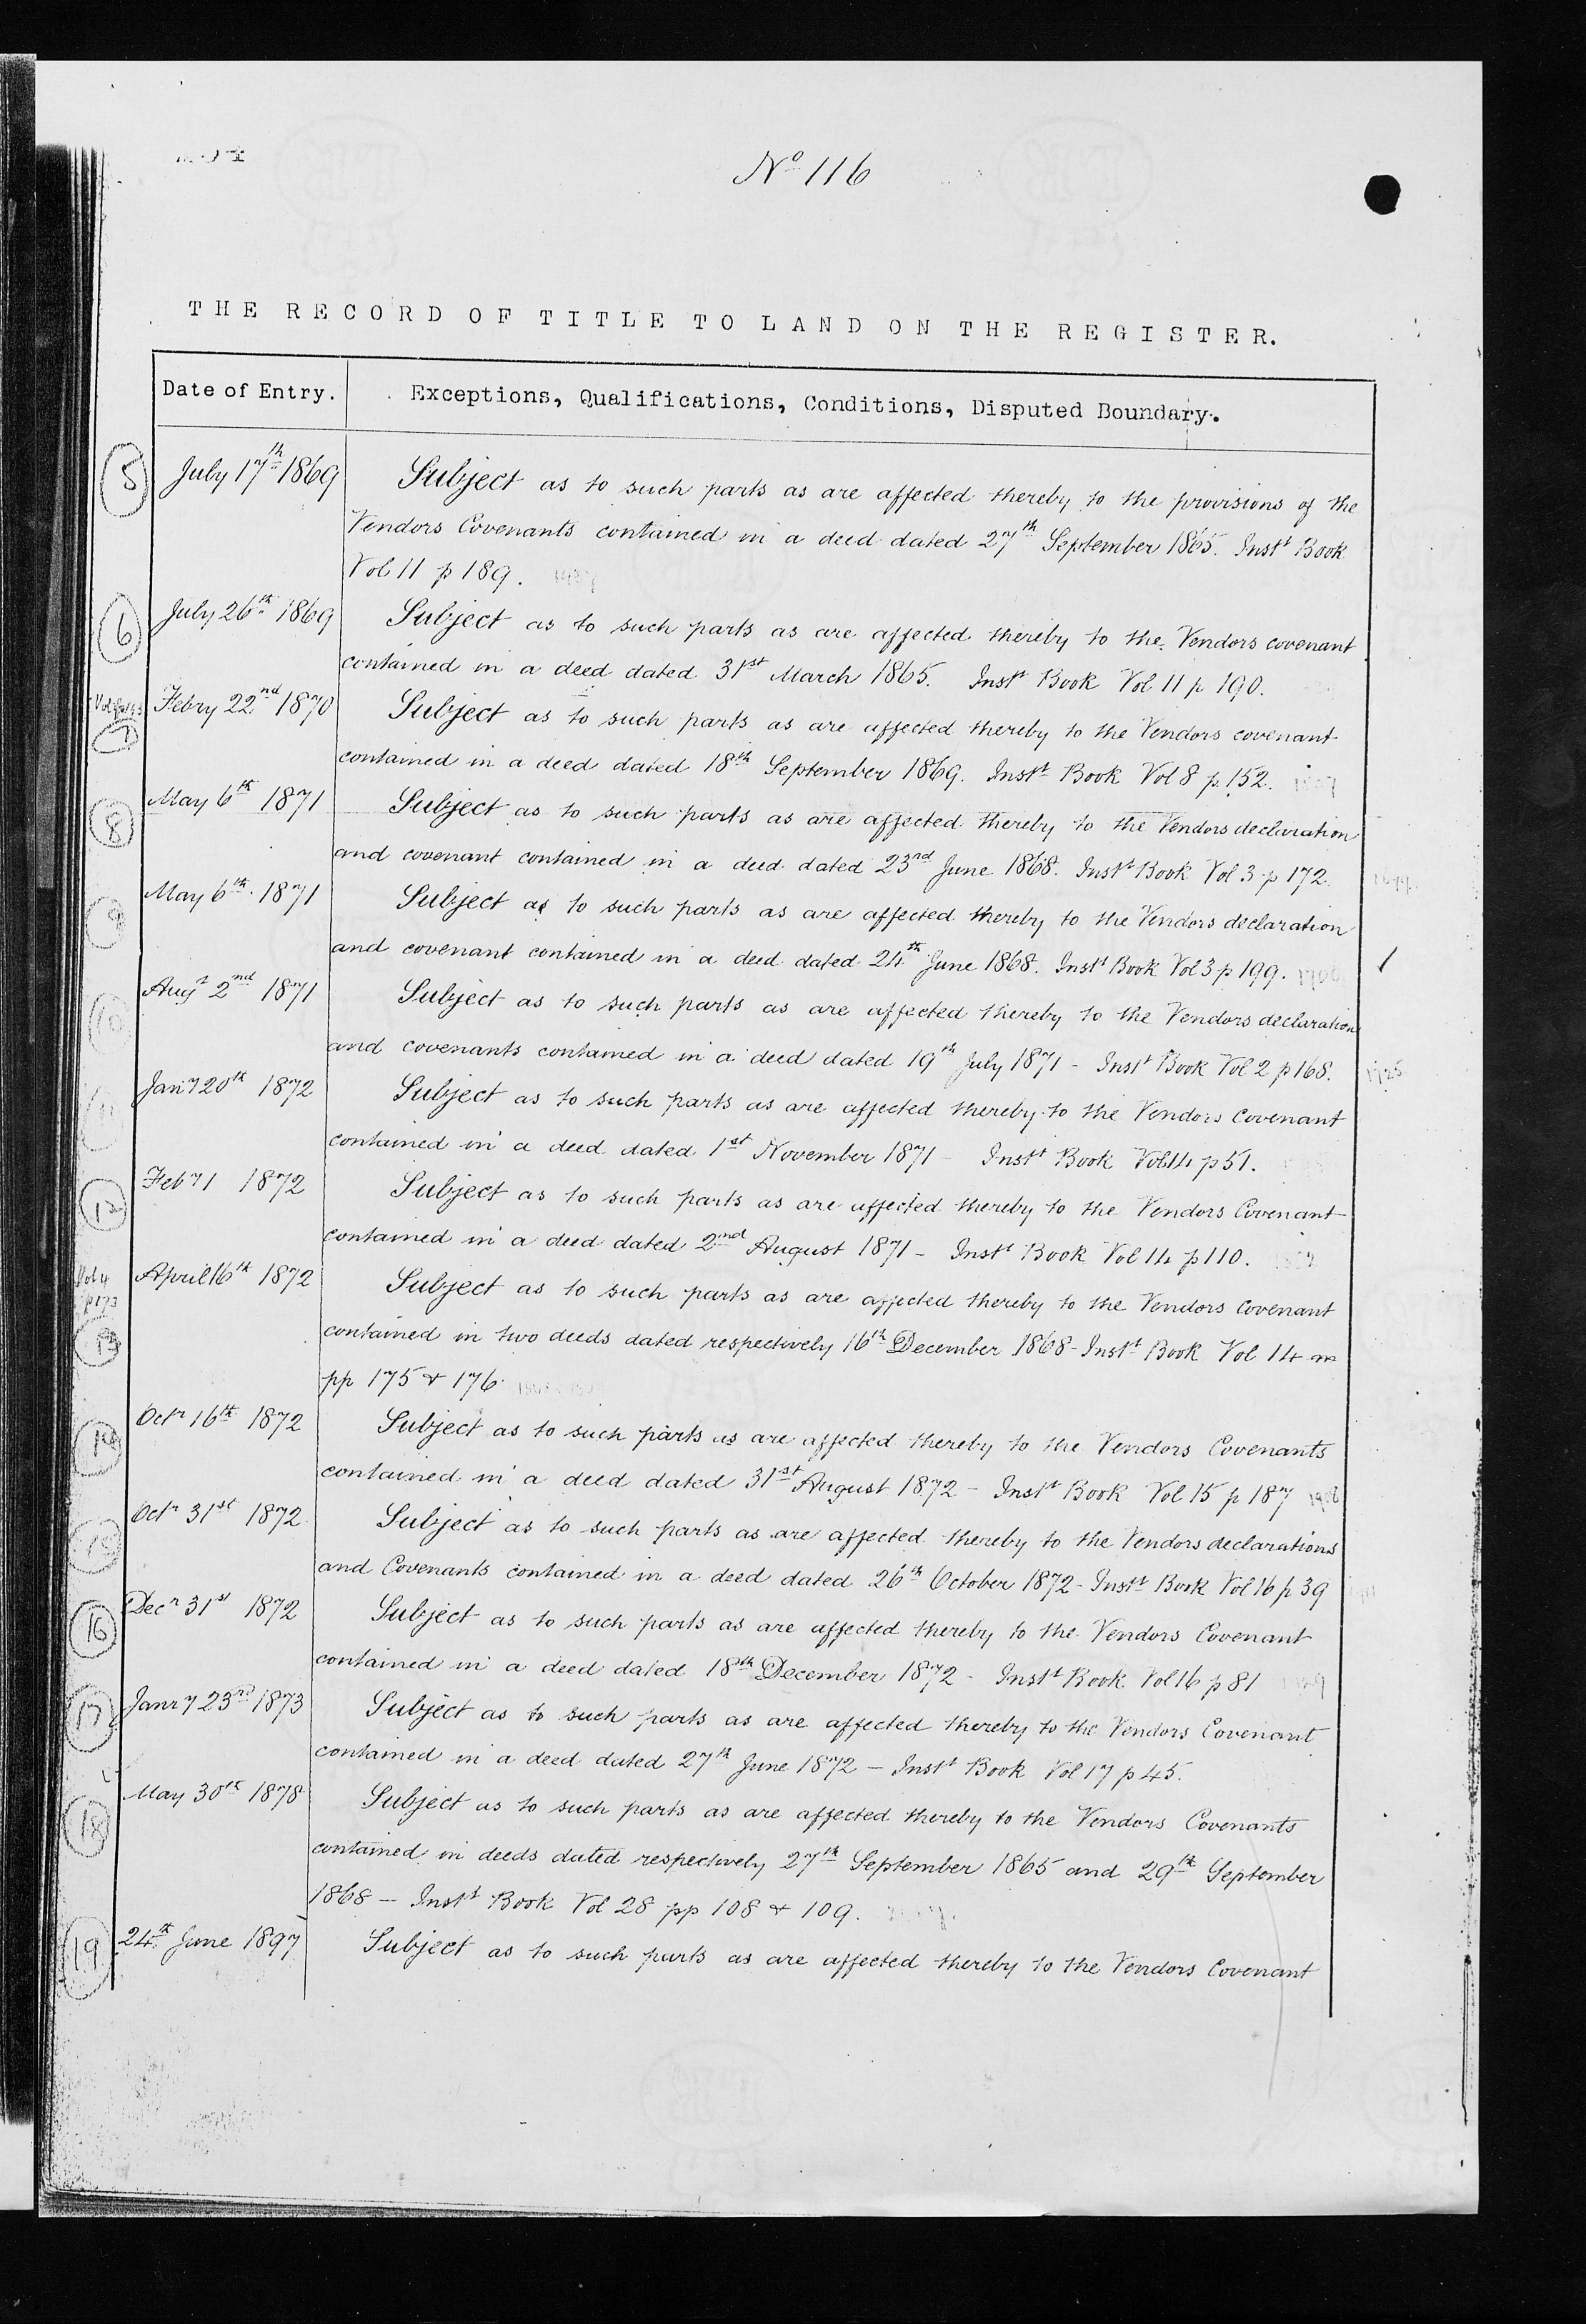 Nº 116
THE RECORD OF TITLE TO LAND ON THE REGISTER.
Date of Entry. Exceptions, Qualifications, Conditions, Disputed Boundary.
5 July 17th 1869 Subject as to such parts as are affected thereby to the provisions of the
Vendors Covenants contained in a deed dated 27th September 1865. Instt Book
Vol 11 p 189.
6 July 26th 1869 Subject as to such parts as are affected thereby to the Vendors covenant
contained in a deed dated 31st March 1865. Instt Book Vol 11 p 190.
7 Febry 22nd 1870 Subject as to such parts as are affected thereby to the Vendors covenant
contained in a deed dated 18th September 1869. Instt Book Vol 8 p. 152.
8 May 6th 1871 Subject as to such parts as are affected thereby to the Vendors declaration
and covenant contained in a deed dated 23nd June 1868. Instt Book Vol 3 p 172.
9 May 6th 1871 Subject as to such parts as are affected thereby to the Vendors declaration
and covenant contained in a deed dated 24th June 1868. Instt Book Vol 3 p 199.
10 Augt 2nd 1871 Subject as to such parts as are affected thereby to the Vendors declaration
and covenants contained in a deed dated 19th July 1871 - Instt Book Vol 2 p 168.
11 Jany 20th 1872 Subject as to such parts as are affected thereby to the Vendors Covenant
contained in a deed dated 1st November 1871 - Instt Book Vol 14 p 51.
12 Feby 1 1872 Subject as to such parts as are affected thereby to the Vendors Covenant
contained in a deed dated 2nd August 1871 - Instt Book Vol 14 p 110.
Vol 4
p 173
13 April 16th 1872 Subject as to such parts as are affected thereby to the Vendors Covenant
contained in two deeds dated respectively 16th December 1868 - Instt Book Vol 14
pp 175 & 176
14 Octr 16th 1872 Subject as to such parts as are affected thereby to the Vendors Covenants
contained in a deed dated 31st August 1872 - Instt Book Vol 15 p 187
15 Octr 31st 1872 Subject as to such parts as are affected thereby to the Vendors declarations
and Covenants contained in a deed dated 26th October 1872 - Instt Book Vol 16 p 39
16 Decr 31st 1872 Subject as to such parts as are affected thereby to the Vendors Covenant
contained in a deed dated 18th December 1872 - Instt Book Vol 16 p 81
17 Janry 23rd 1873 Subject as to such parts as are affected thereby to the Vendors Covenant
contained in a deed dated 27th June 1872 - Instt Book Vol 17 p 45.
18 May 30th 1878 Subject as to such parts as are affected thereby to the Vendors Covenants
contained in deeds dated respectively 27th September 1865 and 29th September
1868 - Instt Book Vol 28 pp 108 & 109.
19 24th June 1897 Subject as to such parts as are affected thereby to the Vendors Covenant